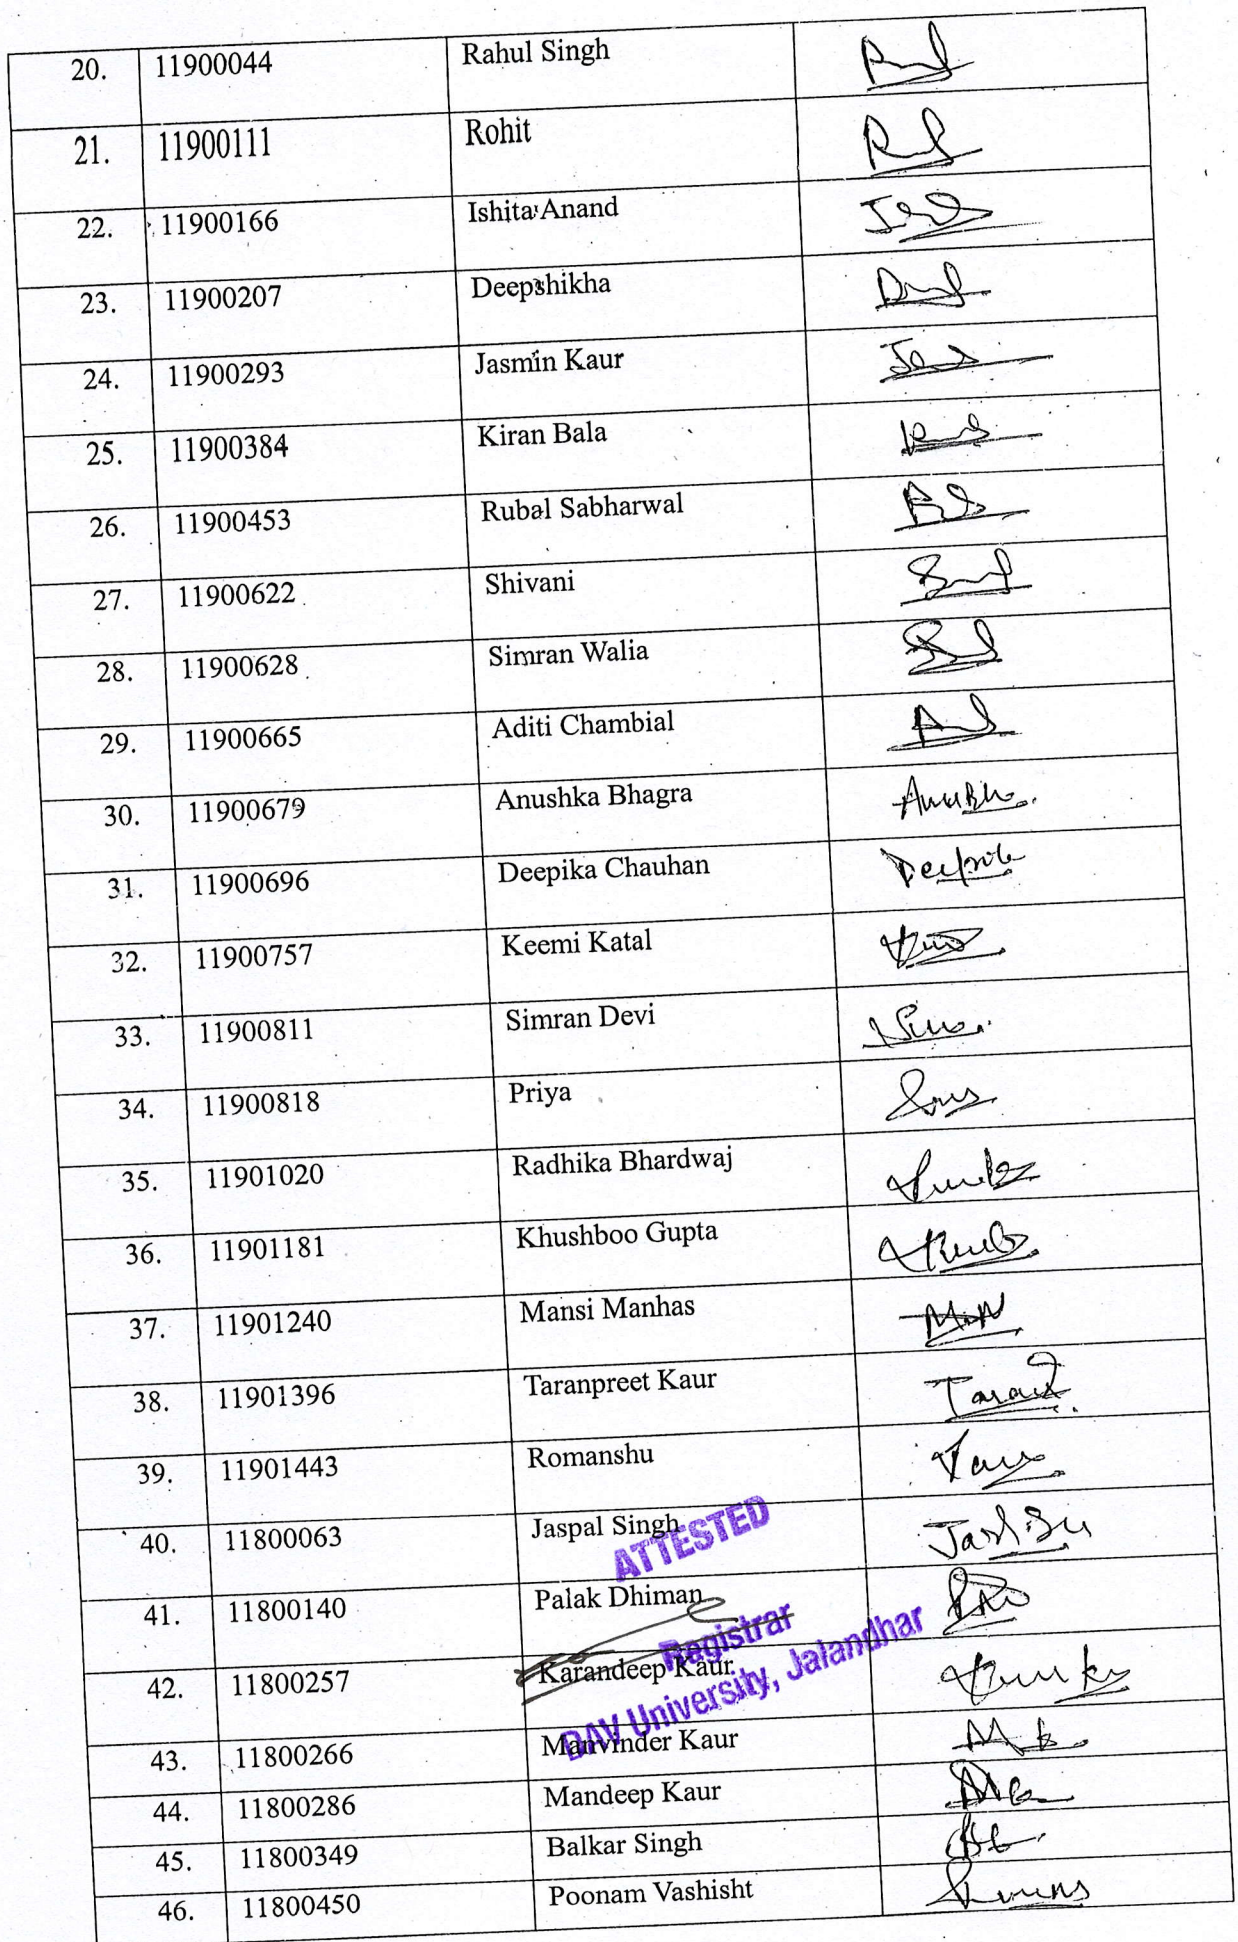 20. 11900044 Rahul Singh
21. 11900111 Rohit
22. 11900166 Ishita Anand
23. 11900207 Deepshikha
24. 11900293 Jasmin Kaur
25. 11900384 Kiran Bala
26. 11900453 Rubal Sabharwal
27. 11900622 Shivani
28. 11900628 Simran Walia
29. 11900665 Aditi Chambial
30. 11900679 Anushka Bhagra
31. 11900696 Deepika Chauhan
32. 11900757 Keemi Katal
33. 11900811 Simran Devi
34. 11900818 Priya
35. 11901020 Radhika Bhardwaj
36. 11901181 Khushboo Gupta
37. 11901240 Mansi Manhas
38. 11901396 Taranpreet Kaur
39. 11901443 Romanshu
40. 11800063 Jaspal Singh
ATTESTED
41. 11800140 Palak Dhiman
Registrar
42. 11800257 Karandeep Kaur
DAV University, Jalandhar
43. 11800266 Manvinder Kaur
44. 11800286 Mandeep Kaur
45. 11800349 Balkar Singh
46. 11800450 Poonam Vashisht